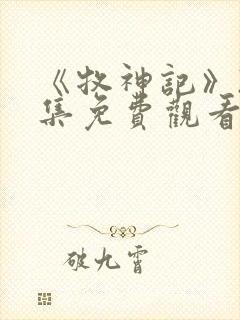 《牧神記》
集免費觀看
破九霄